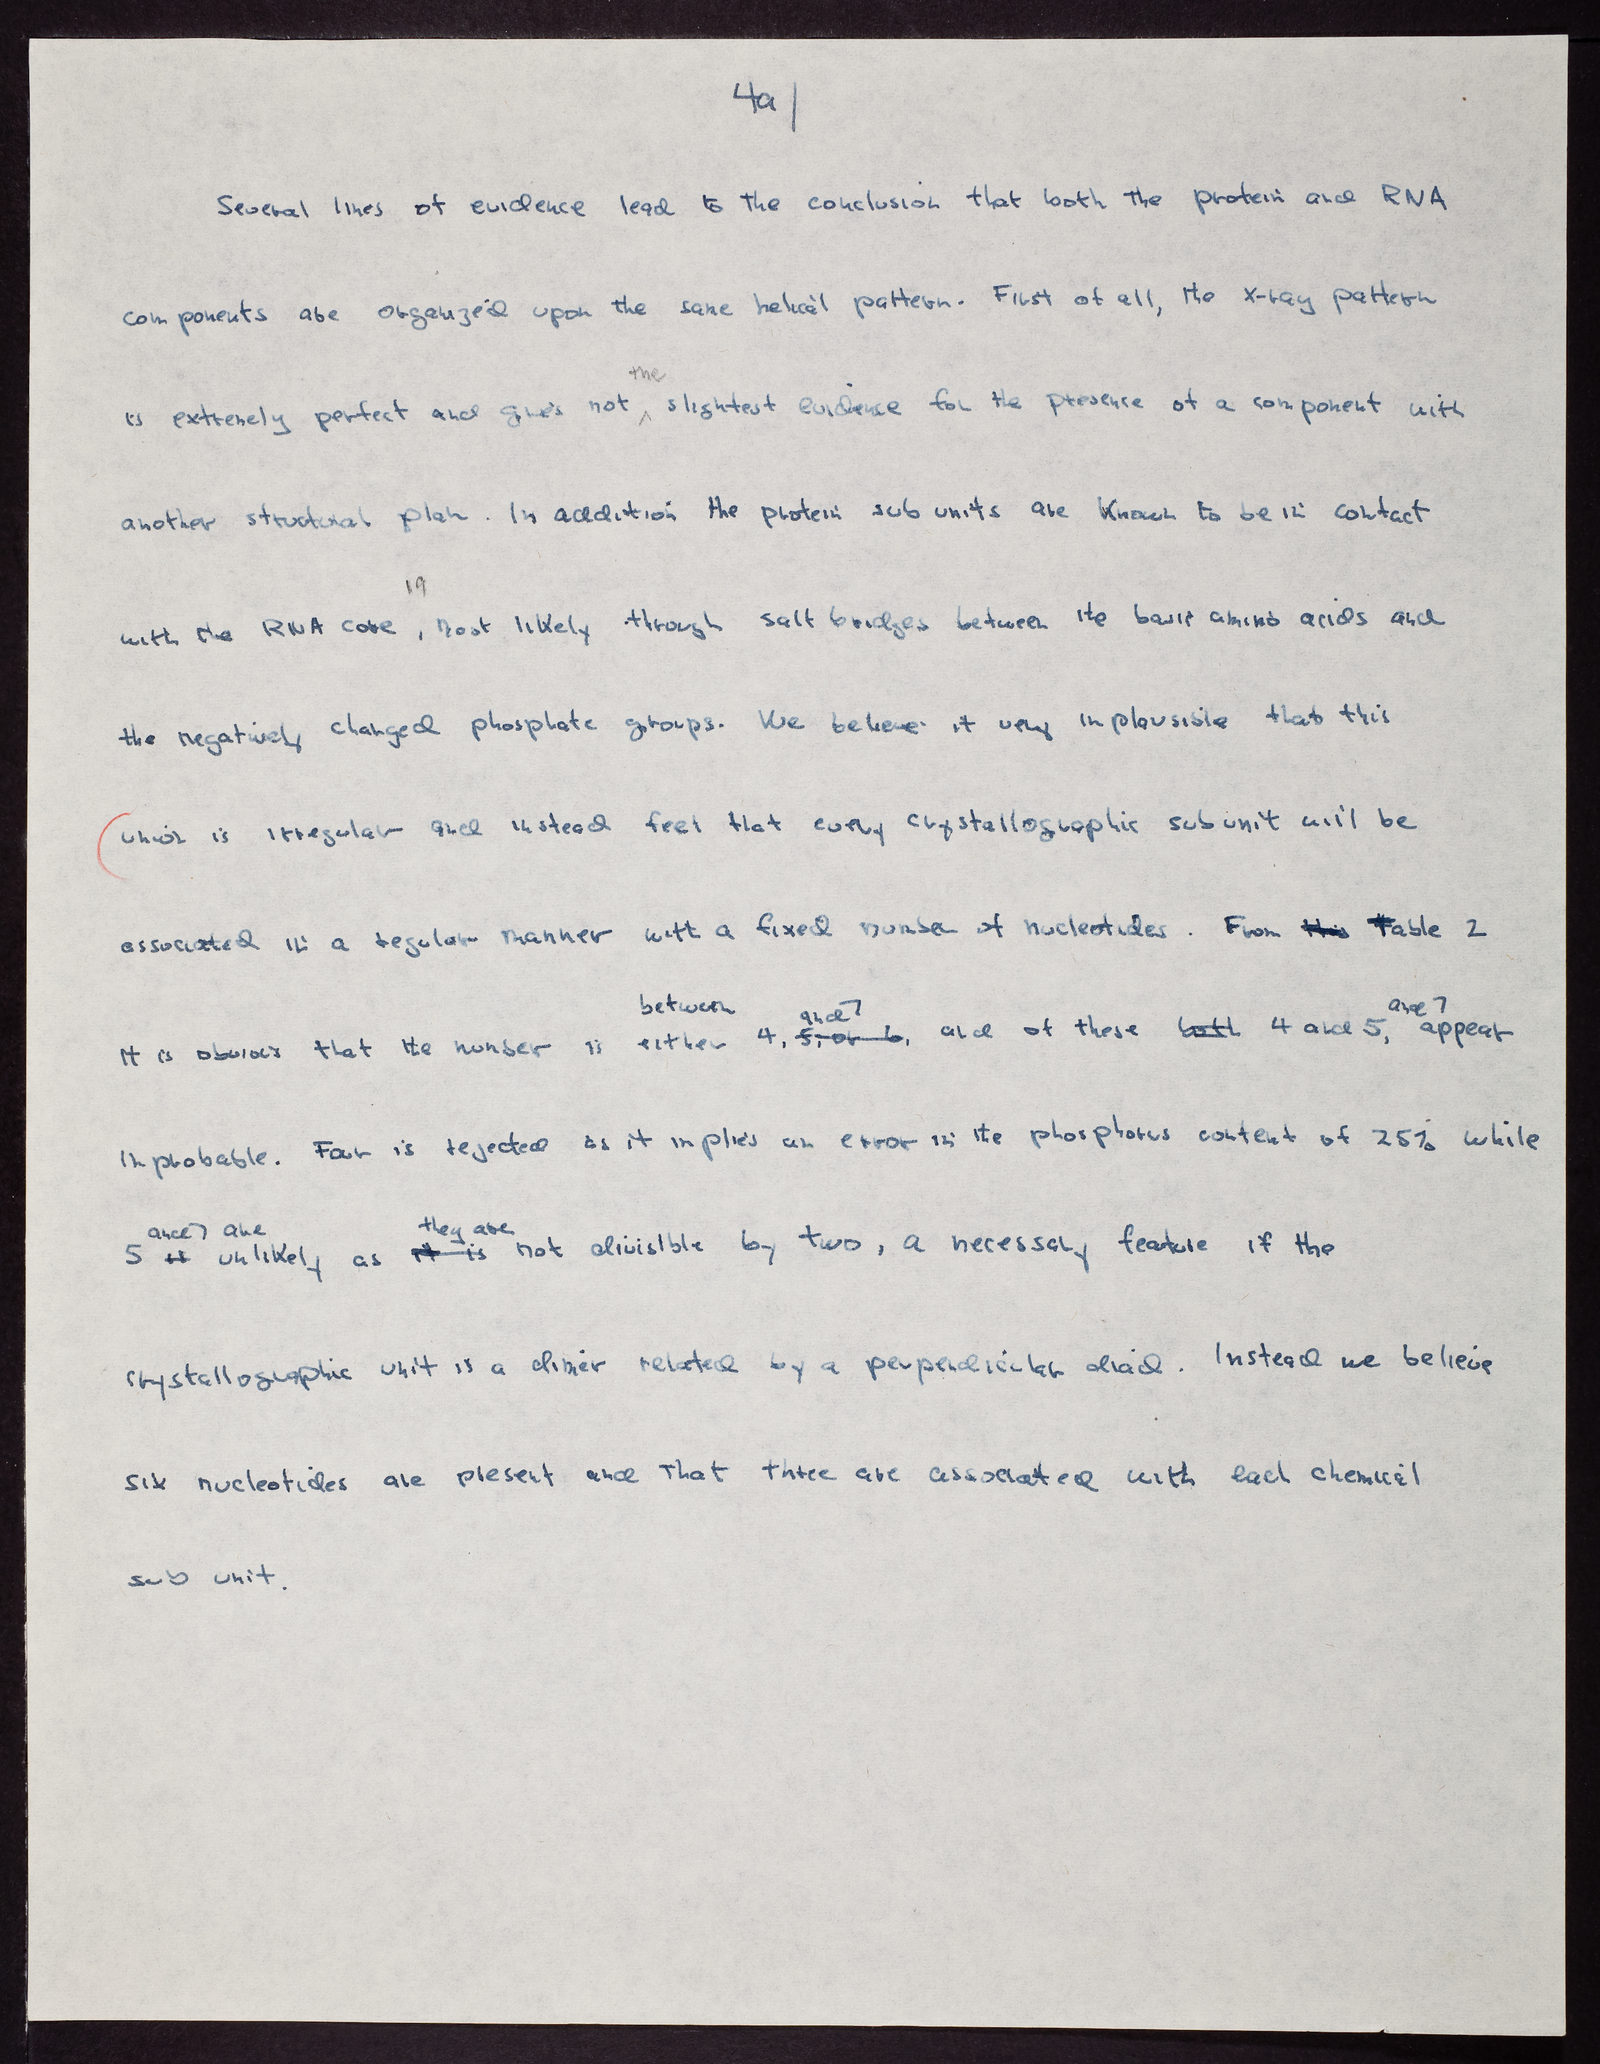 4a
Several lines of evidence lead to the conclusion that both the protein and RNA
components are organized upon the same helical pattern. First of all, the X-ray pattern
the
is extremely perfect and gives not ^ slightest evidence for the presence of a component with
another structural plan. In addition the protein sub units are known to be in contact
19
with the RNA core, most likely through salt bridges between the basic amino acids and
the negatively charged phosphate groups. We believe it very implausible that this
union is irregular and instead feel that every crystallographic subunit will be
associated in a regular manner with a fixed number of nucleotides. From this Table 2
between and 7 and 7
It is obvious that the number is either 4, 5, or 6, and of these both 4 and 5, appear
improbable. Four is rejected as it implies an error in the phosphorus content of 25% while
and 7 are they are
5 is unlikely as it is not divisible by two, a necessary feature if the
crystallographic unit is a dimer related by a perpendicular diad. Instead we believe
six nucleotides are present and that three are associated with each chemical
sub unit.